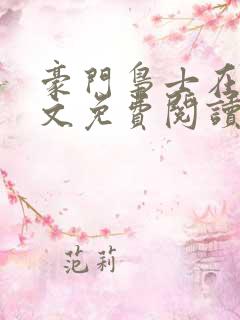 豪門梟士在
文免費閱讀
范莉